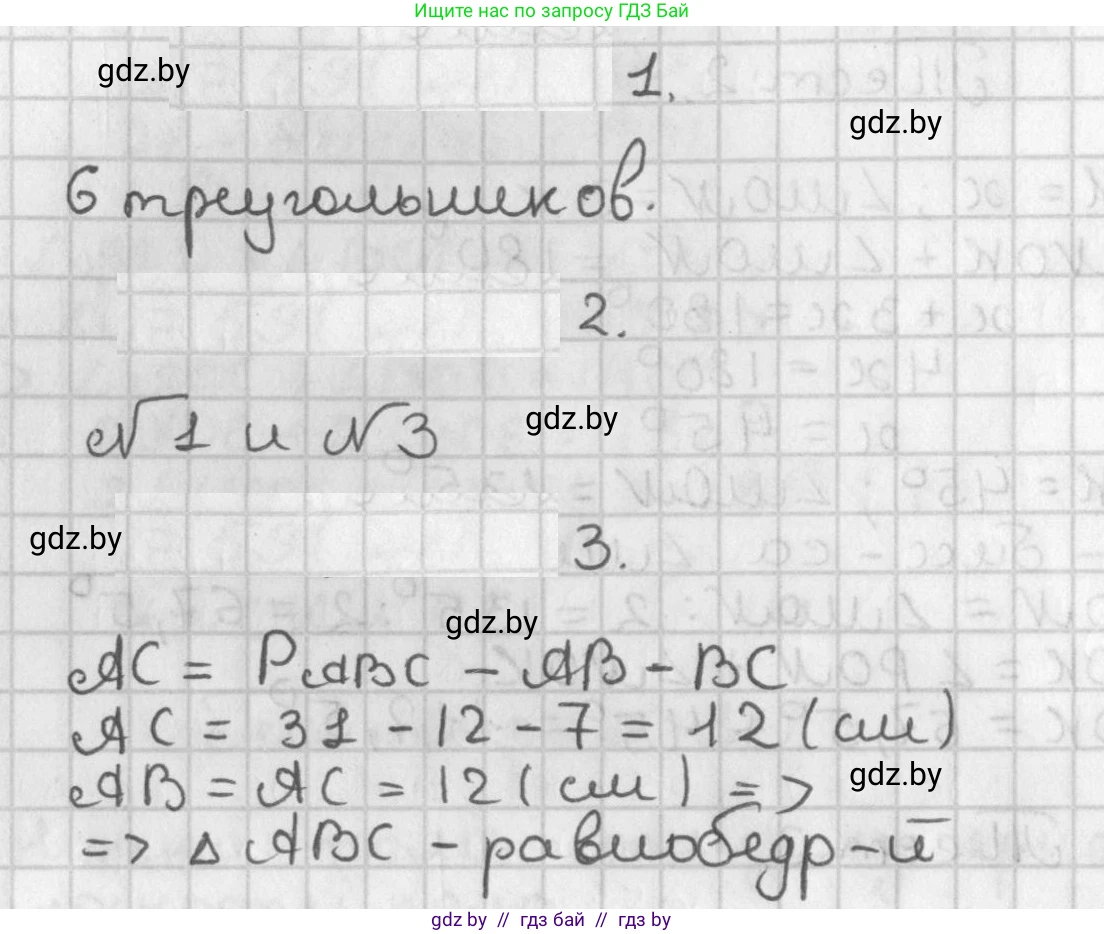 Ищите нас по запросу ГДЗ Бай
gdz.by
1.
gdz.by
6 треугольников.
2.
№1 и №3
gdz.by
gdz.by
3.
gdz.by
AC = PABC - AB - BC
AC = 31 - 12 - 7 = 12 (см)
AB = AC = 12 (см) =>
gdz.by
=> Δ ABC - равнобедр-й
gdz by // гдз бай // гдз by